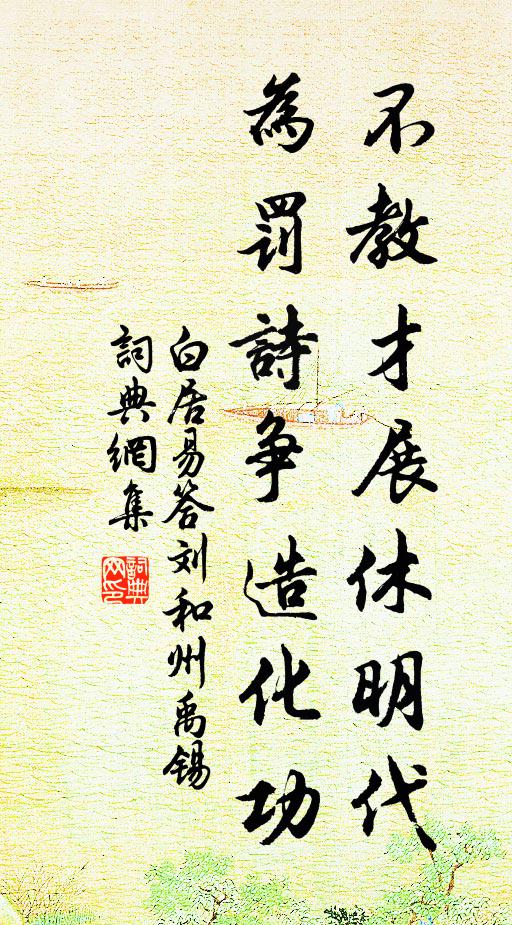 不教才展休明代
為罰詩争造化功
白居易答刘和州禹锡
詞典網集
詞典
网印